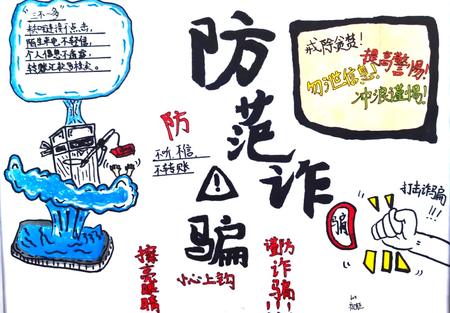 "三不一多"
未知链接不点击,
陌生来电不轻信,
个人信息不透露,
转账汇款多核实。
防范诈骗
戒除贪婪!
提高警惕!
勿泄信息!
冲浪谨惕!
防
不听、不信、
不转账
打击诈骗!!!
骗
擦亮眼睛
小心上钩
谨防诈骗!!!